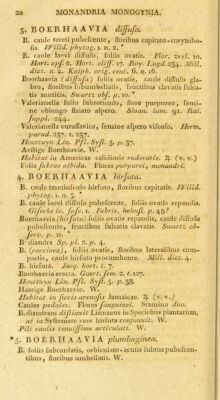 20 MONANDRIA MONOGYNIA.
3. BOERHAAVIA diffusa.
B. caule tereti pubescente, floribus capitato-corymbo-
sis. Willd. phytog. 1. n. 2. *
B. caule laevi diffuso, foliis ovatis. Flor. zeyl. 10.
Hort. upf. 2. Hort. cliff. 17. Roy. Lugd. 234. Mill.
dict. n. 2. Kniph. orig. cent. 6. n. 16.
Boerhaavia (diffusa) foliis ovatis, caule diffuso gla-
bro, floribus subumbellatis, fructibus clavatis sulca-
tis muticis. Swartz obs. p. 10. *
Valerianella folio subrotundo, flore purpureo, semi-
ne oblongo striato aspero. Sloan. Iam. 91. Rai.
suppl. 244.
Valerianella curassavica, semine aspero viscoso. Herm.
parad. 237. t. 237.
Houttuyn Lin. Pfl. Syst. 5. p. 37.
Aestige Boerhaavie. W.
Habitat in Americae calidioris ruderatis. ♃ (v. v.)
Folia subtus albida. Flores purpurei, monandri.
4. BOERHAAVIA hirsuta.
B. caule teretiusculo hirsuto, floribus capitatis. Willd.
phytog. 1. n. 3. *
B. caule laevi diffuso pubescente, foliis ovatis repandis.
Gisecke ic. fasc. 1. Febric. helmst. p. 45. †
Boerhaavia (hirsuta) foliis ovatis repandis, caule diffuso
pubescente, fructibus sulcatis clavatis. Swartz ob-
serv. p. 11. *
B. diandra Sp. pl. 2. p. 4.
B. (coccinea), foliis ovatis, floribus lateralibus com-
pactis, caule hirsuto procumbente. Mill. dict. 4.
B. hirsuta. Jacq. hort. 1. 7.
Boerhaavia erecta. Gaert. sem. 2. t. 127.
Houttuyn Lin. Pfl. Syst. 5. p. 38.
Haarige Boerhaavie. W.
Habitat in siccis arenosis Jamaicae. ♃ (v. v.)
Caules pedales. Flores sanguinei. Stamina duo.
B. diandram distinxit Linnaeus in Speciebus plantarum,
at in Systemate cum hirsuta conjunxit. W.
Pili caulis tenuissime articulati. W.
*5. BOERHAAVIA plumbaginea.
B. foliis subcordatis, orbiculato-acutis subtus pubescen-
tibus, floribus umbellatis. W.